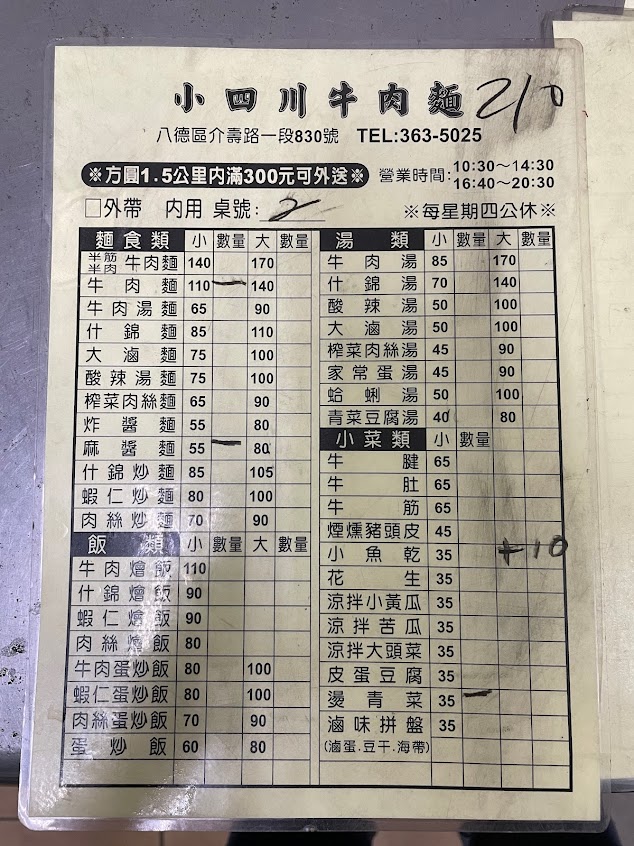 小四川牛肉麵 210
八德區介壽路一段830號 TEL:363-5025
※方圓1.5公里內滿300元可外送※ 營業時間:10:30～14:30
16:40～20:30
□外帶 內用 桌號: 2 ※每星期四公休※
麵食類 小 數量 大 數量
半筋半肉 牛肉麵 140 170
牛肉麵 110 一 140
牛肉湯麵 65 90
什錦麵 85 110
大滷麵 75 100
酸辣湯麵 75 100
榨菜肉絲麵 65 90
炸醬麵 55 80
麻醬麵 55 一 80
什錦炒麵 85 105
蝦仁炒麵 80 100
肉絲炒麵 70 90
飯類 小 數量 大 數量
牛肉燴飯 110
什錦燴飯 90
蝦仁燴飯 90
肉絲燴飯 80
牛肉蛋炒飯 80 100
蝦仁蛋炒飯 80 100
肉絲蛋炒飯 70 90
蛋炒飯 60 80
湯類 小 數量 大 數量
牛肉湯 85 170
什錦湯 70 140
酸辣湯 50 100
大滷湯 50 100
榨菜肉絲湯 45 90
家常蛋湯 45 90
蛤蜊湯 50 100
青菜豆腐湯 40 80
小菜類 小 數量
牛腱 65
牛肚 65
牛筋 65
煙燻豬頭皮 45
小魚乾 35 +10
花生 35
涼拌小黃瓜 35
涼拌苦瓜 35
涼拌大頭菜 35
皮蛋豆腐 35
燙青菜 35 一
滷味拼盤 35
(滷蛋.豆干.海帶)